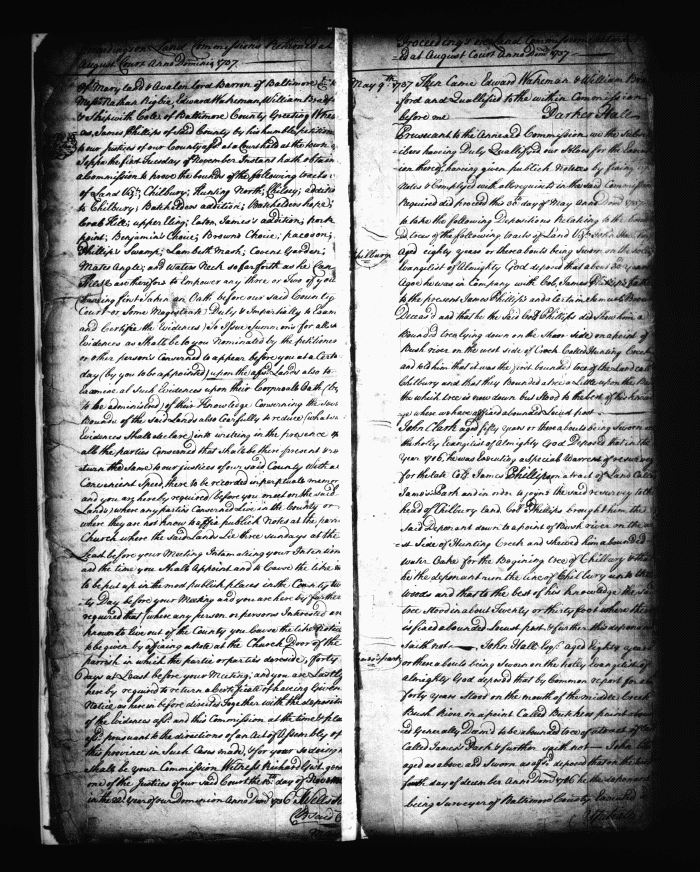 Proceedings on Land Commissions Returned at
August Court Anno Dominie 1737
of Maryland & Avalon Lord Barron of Baltimore &c
Nathan Rigbie, Edward Wakeman, William
& Skipwith Cole of Baltimore County Greeting
as, James Phillips of Said County by his humble petition
to our Justices of our County afsd at a Court held at the town of
Joppa the first Tuesday of November Instant hath obtain
a Commission to prove the bounds of the following tracts
of Land Vizt. Chilbury; Hunting North; Chelsey; addition
to Chilbury; Batchelders addition; Batchelders hope;
Crab Hill; upper Eling; Eaton; James's addition; pork
point; Benjamin's Choice; Browns Choice; pacoson;
Phillip's Swamp; Lambeth Marsh; Covent Garden;
Mates Angle; and water Neck so far forth as he Can
These are therefore to Empower any three or Two of you
having first taken an Oath before our said County
Court or Some Magestrate Duly & Impartially to Exam
and Certifie the Evidences To Issue Summons for all
Evidences as Shall be to you Nominated by the petitioner
or other persons Concerned to appear before you at a Certa
day (by you to be appointed) upon the afsd Lands also to
Examine all Such Evidences upon their Corporale Oath (by
to be administred) of their Knowledge Concerning the
Bounds of the Said Lands also Carfully to reduce (what
Evidences Shall declare) into writeing in the presence of
all the parties Concerned that Shall be there present
turn the Same to our Justices of our said County With a
Convenient Speed, there to be recorded in perpetuale memor
and you are hereby required (before you meet on the said
Lands) where any parties Concerned Live in the County or
where they are not known to affix publick Notes at the parish
Church where the Said Lands Lie three Sundays at the
Least before your Meeting Intimateing your Intention
and the time you Shall appoint and to Cause the like
to be put up in the most publick places in the County
ty Day before your Meeting and you are here by further
required that (where any person or persons Interested are
known to live out of the County you Cause the like Notice
to be given by affixing a Note at the Church Door of the
parrish in which the partie or parties do reside, forty
Days at Least before your Meeting; and you are Lastly
here by required to return a Certificate of haveing Given
Notice as herein before directed Together with the depositions
of the Evidences afsd and this Commission at the time & pla
afsd pursuant to the directions of an Act of Assembly of
this province in Such Cases made, & for your so doing
shall be your Commission Witness Richard Gist gent
one of the Justices of our Said Court the day of November
in the 22d. Year of our Dominion Anno Domi 1736
Proceedings on Land Commissions
ed at August Court Anno Domi 1737
May 9th 1737 Then Came Edward Wakeman & William
ford and Quallified to the within Commission
before me Parker Hall
Pursuant to the Annexd Commission we the Subscri
ibers haveing Duly Quallified our Selves for the
ion thereof, having given publick Notices by fixing up
Notes & Complyed with all requisits in the said Commission
Required did proceed this day of May Anno Domi 1737
to take the following Depositions Relating to the bound
ed trees of the following tracts of Land Vizt John Hall Esqr
Chilbury
Aged eighty years or there abouts being Sworn on the holy
Evangelist of Almighty God deposed that about 30 years
Agoe he was in Company with Col. James Phillips father
to the present James Phillips and a Certain
Deceasd and that he the Said Col Phillips did Shew him a
Bounded tree lying down on the Shore Side on a point of
Bush river on the west side of Creek Called Hunting Creek
and told him that it was the first bounded tree of the Land call
Chilbury and that they Bounded a tree a Little upon the Bank
the which tree is now down but Stood to the best of his Knowle
ge where we have afixed a bounded Locust post
John Clark aged fifty years or there abouts being Sworn on
the holley Evangelist of Almighty God Deposed that in the
Year 1706, he was Executing a Special Warrent of resurvey
for the late Col. James Phillips on a tract of Land Calld
James's Park and in order to joyn the said resurvey to the
head of Chilbury Land Col. Phillips brought him the
Said Deponant down to a point of Bush river on the
st Side of Hunting Creek and shewed him a bounded
water Oake for the Begining tree of Chilbury & that
he the deponant run the line of Chilbury unto the
Woods and that to the best of his Knowledge the said
tree Stood in about Twenty or thirty foot where there
is fixed a bounded Locust post. & further this deponant
Saith not. John Hall Esqr. Aged Eighty years
James's park
or there abouts being Sworn on the holley Evangelist of
almighty God deposed that by Common report for a
forty years Stood on the mouth of the middle Creek
Bush River on a point Called Butchers point
ed Generally Deemd to be a bounded tree of
Called James's Park & further saith not John
aged as above and Sworn as afsd deposed that on the
fourth day of december Anno Domi 1706 he the deponant
being Surveyor of Baltimore County Executed